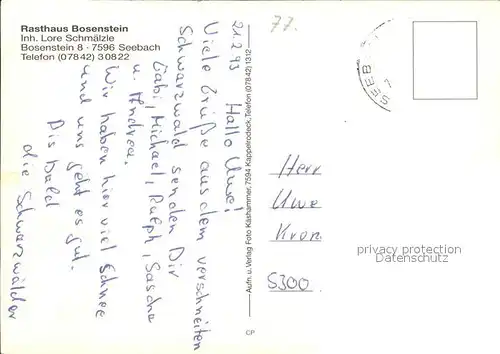 Rasthaus Bosenstein
Inh. Lore Schmälzle
Bosenstein 8 · 7596 Seebach
Telefon (07842) 30822
21.2.93
Hallo Uwe!
Viele Grüße aus dem verschneiten
Schwarzwald senden Dir
Gabi, Michael, Ralph, Sascha
u. Andrea.
Wir haben hier viel Schnee
und uns geht es gut.
Bis bald
die Schwarzwälder
Aufn. u. Verlag Foto Käshammer, 7594 Kappelrodeck, Telefon (07842) 1312
CP
77.
SEEB
7
Herr
Uwe
Kron
5300
privacy protection
Datenschutz